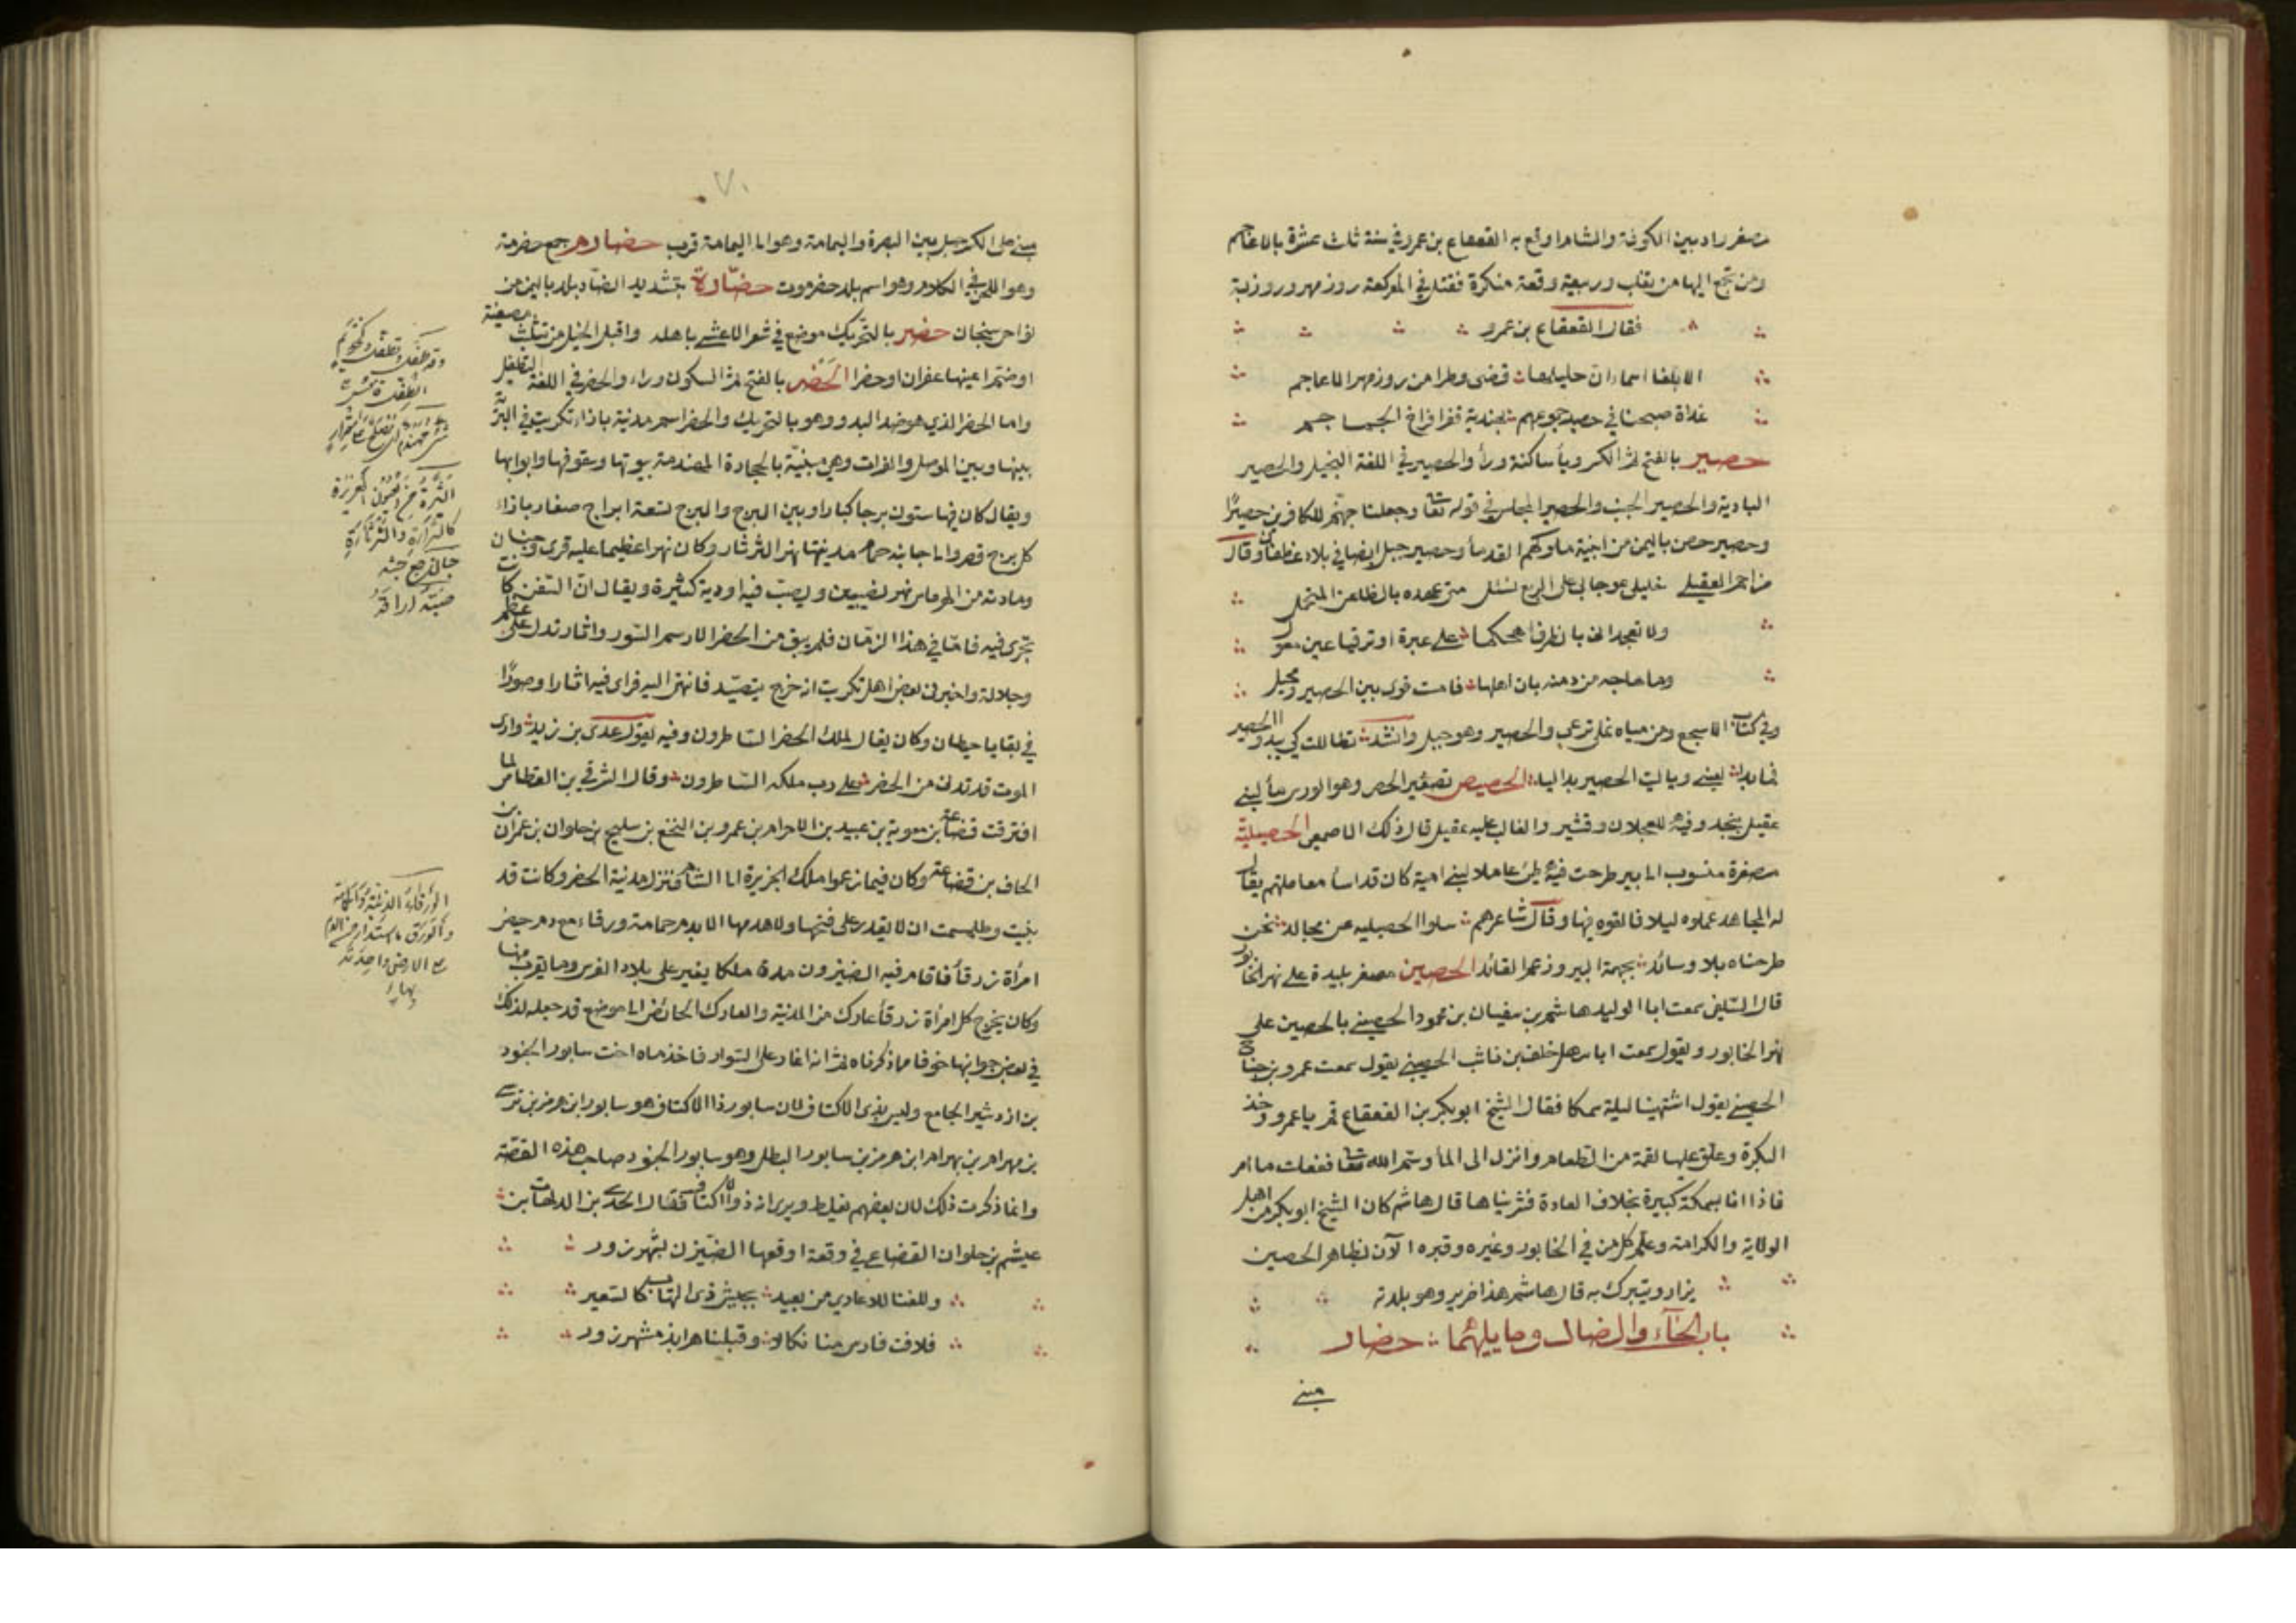 مصغر واد بين الكوفة والشام اوقع به القعقاع بن عمرو في سنة ثلث عشرة بالاعاجم
ومن تجمع اليها من تغلب وربيعة وقعة منكرة فقتل في المعركة روزمهر وروزبة
فقال القعقاع بن عمرو
الا ابلغا اسماء ان حليلها قضى وطرا من روزمهر الاعاجم
غداة صبحنا في حصيد جموعهم بهندية تفرى فراخ الجماجم
حصير بالفتح ثم الكسر وياء ساكنة وراء والحصير في اللغة البخيل والحصير
البادية والحصير الجنب والحصير المجلس في قوله تعا وجعلنا جهنم للكافرين حصيرًا
وحصير حصن باليمن من ابنية ملوكهم القدماء وحصير جبل ايضا في بلاد غطفان وقال
مزاحم العقيلي خليلي عوجا بي على الربع نسئل متى عهده بالظاعن المتحمل
ولا تعجلاني بانصراف اهجكما على عبرة او ترقيا عين معول
وما هاجه من دمنة بان اهلها فامست قوى بين الحصير ومحبل
وفي كتاب الاصمعي ومن مياه نملى ترعى والحصير وهو جبل وانشد تطاللت كي يبدو الحصير
فما بدا لعيني ويا ليت الحصير بدا ليا الحصيص تصغير الحص وهو الورس ماء لبني
عقيل بنجد وفيه للعجلان وقشير والغالب عليه عقيل قال ذلك الاصمعي الحصيلية
مصغرة منسوب الى بير طرحت فيه طي عاملا لبني امية كان قد اساء معاملتهم يقال
له المجاهد عملوه ليلا فالقوه فيها وقال شاعرهم سلوا الحصيليه عن مجالد نحن
طرحناه بلا وسائد بجهمة البير وزعم القائد الحصين مصغر بليدة على نهر الخابور
قال السلفي سمعت ابا الوليد هاشم بن سفيان بن محمود الحصيني بالحصين على
نهر الخابور ويقول سمعت ابا سهل خلف بن ثابت الحصيني يقول سمعت عمرو بن جناح
الحصيني يقول اشتهينا ليلة سمكا فقال الشيخ ابو بكر بن القعقاع قم يا عمرو وخذ
البكرة وعلق عليها لقمة من الطعام وانزل الى الماء وسم الله تعا ففعلت ما امر
فاذا انا بسمكة كبيرة بخلاف العادة فشويناها قال هاشم كان الشيخ ابو بكر من اهل
الولاية والكرامة وعلم كل من في الخابور وغيره وقبره الآن بظاهر الحصين
يزار ويتبرك به قال هاشم هذا ضرير وهو بلدته
باب الحاء والضاد وما يليهما حضار
مبني
٧٠
مبني على الكسر جبل بين البصرة واليمامة وهو الى اليمامة قرب حضارم جمع حضرمة
وهو اللحن في الكلام وهو اسم بلد حضرموت حضارة بتشديد الضاد بلد باليمن من
نواحي سنحان حضر بالتحريك موضع في شعر الاعشى باهلة واقبل الخيل من تثليث مصغية
او ضم اعينها عفران او حضرا الحضر بالفتح ثم السكون وراء والحضر في اللغة التطفيل
واما الحضر الذي هو ضد البدو وهو بالتحريك والحضر اسم مدينة بازاء تكريت في البرية
بينها وبين الموصل والفرات وهي مبنية بالحجارة المهندمة بيوتها وسقوفها وابوابها
ويقال كان فيها ستون برجا كبارا وبين البرج والبرج تسعة ابراج صغار بازاء
كل برج قصر والى جانبه حمام مدينتها نهر الثرثار وكان نهرا عظيما عليه قرى وجنان
ومادته من الهرماس نهر نصيبين ويصب فيه اودية كثيرة ويقال ان السفن كانت
تجرى فيه فاما في هذا الزمان فلم يبق من الحضر الا رسم السور واثار تدل على عظم
وجلالة واخبرني بعض اهل تكريت انه خرج يتصيد فانتهى اليه فراى فيه اثارا وصورًا
في بقايا حيطان وكان يقال لملك الحضر الساطرون وفيه يقول عدى بن زيد وارى
الموت قد تدلى من الحضر على رب ملكه الساطرون وقال الشرقي بن القطامي لما
افترقت قضاعة بن معوية بن عبيد بن الاحرام بن عمرو بن النخع بن سليح بن حلوان بن عمران بن
الحاف بن قضاعة وكان فيما زعموا ملك الجزيرة الى الشام فنزل مدينة الحضر وكانت قد
بنيت وطلسمت ان لا يقدر على فتحها ولا هدمها الا بدم حمامة ورقاء مع دم حيض
امرأة زرقاء فاقام فيه الضيزن مدة ملكا يغير على بلاد الفرس وما يقرب منها
وكان يخرج كل امرأة زرقاء عارك من المدينة والعارك الحائض الى موضع قد جعله لذلك
في بعض جوانبها خوفا مما ذكرناه ثم انه اغار على السواد فاخذ ماه اخت سابور الجنود
بن اردشير الجامع وليس بذى الاكتاف لان سابور ذا الاكتاف هو سابور بن هرمز بن نرسى
بن بهرام بن بهرام بن هرمز بن سابور البطل وهو سابور الجنود صاحب هذه القصة
وانما ذكرت ذلك لان بعضهم يغلط ويرى انه ذو الاكتاف فقال الجدى بن الدلهاث بن
عيشم بن حلوان القضاعي في وقعة اوقعها الضيزن بشهرزور
دلفنا للاعادي من بعيد بجيش ذى التهاب كالسعير
فلاقت فارس منا نكالا وقتلنا هرابذ شهرزور